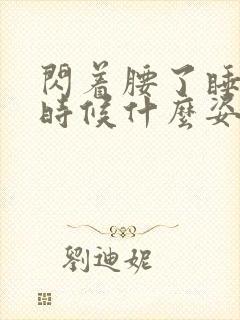 閃着腰了睡
時候什麼姿
劉迪妮